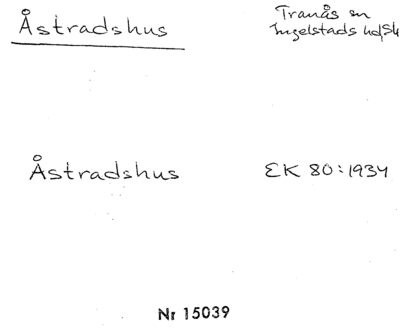 Åstradshus
Tranås sn
Ingelstads hd, Sk
Åstradshus
EK 80:1934
Nr 15039